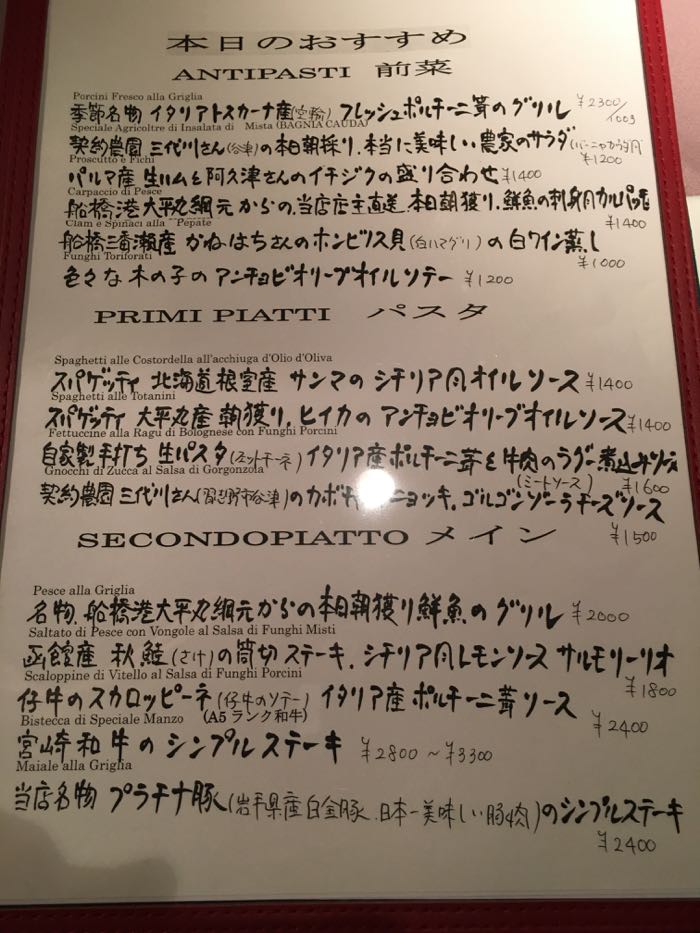 本日のおすすめ
ANTIPASTI 前菜
Porcini Fresco alla Griglia
季節名物 イタリアトスカーナ産(空輸) フレッシュポルチーニ茸のグリル ¥2300/100g
Speciale Agricoltre di Insalata di Mista (BAGNIA CAUDA)
契約農園 三代川さん(谷津)の本日朝採り、本当に美味しい農家のサラダ(バーニャカウダ風) ¥1200
Proscutto e Fichi
パルマ産 生ハムと阿久津さんのイチジクの盛り合わせ ¥1400
Carpaccio di Pesce
船橋港大平丸網元からの、当店店主直送、本日朝獲り、鮮魚の刺身風カルパッチョ ¥1400
Clam e Spinaci alla Pepate
船橋三番瀬産 かねはちさんのホンビノス貝(白ハマグリ)の白ワイン蒸し ¥1000
Funghi Toriforati
色々な木の子のアンチョビオリーブオイルソテー ¥1200
PRIMI PIATTI パスタ
Spaghetti alle Costordella all'acchiuga d'Olio d'Oliva
スパゲッティ 北海道根室産 サンマのシチリア風オイルソース ¥1400
Spaghetti alle Totanini
スパゲッティ 大平丸産 朝獲り、ヒイカのアンチョビオリーブオイルソース ¥1400
Fettuccine alla Ragu di Bolognese con Funghi Porcini
自家製手打ち 生パスタ(フェットチーネ) イタリア産ポルチーニ茸と牛肉のラグー煮込みソース (ミートソース) ¥1600
Gnocchi di Zucca al Salsa di Gorgonzola
契約農園 三代川さん(習志野市谷津)のカボチャニョッキ、ゴルゴンゾーラチーズソース ¥1500
SECONDOPIATTO メイン
Pesce alla Griglia
名物、船橋港大平丸網元からの本日朝獲り鮮魚のグリル ¥2000
Saltato di Pesce con Vongole al Salsa di Funghi Misti
函館産 秋鮭(さけ)の筒切ステーキ、シチリア風レモンソース サルモリーリオ ¥1800
Scaloppine di Vitello al Salsa di Funghi Porcini
仔牛のスカロッピーネ(仔牛のソテー) イタリア産ポルチーニ茸ソース ¥2400
Bistecca di Speciale Manzo (A5ランク和牛)
宮崎和牛のシンプルステーキ ¥2800〜¥3300
Maiale alla Griglia
当店名物 プラチナ豚(岩手県産白金豚、日本一美味しい豚肉)のシンプルステーキ ¥2400